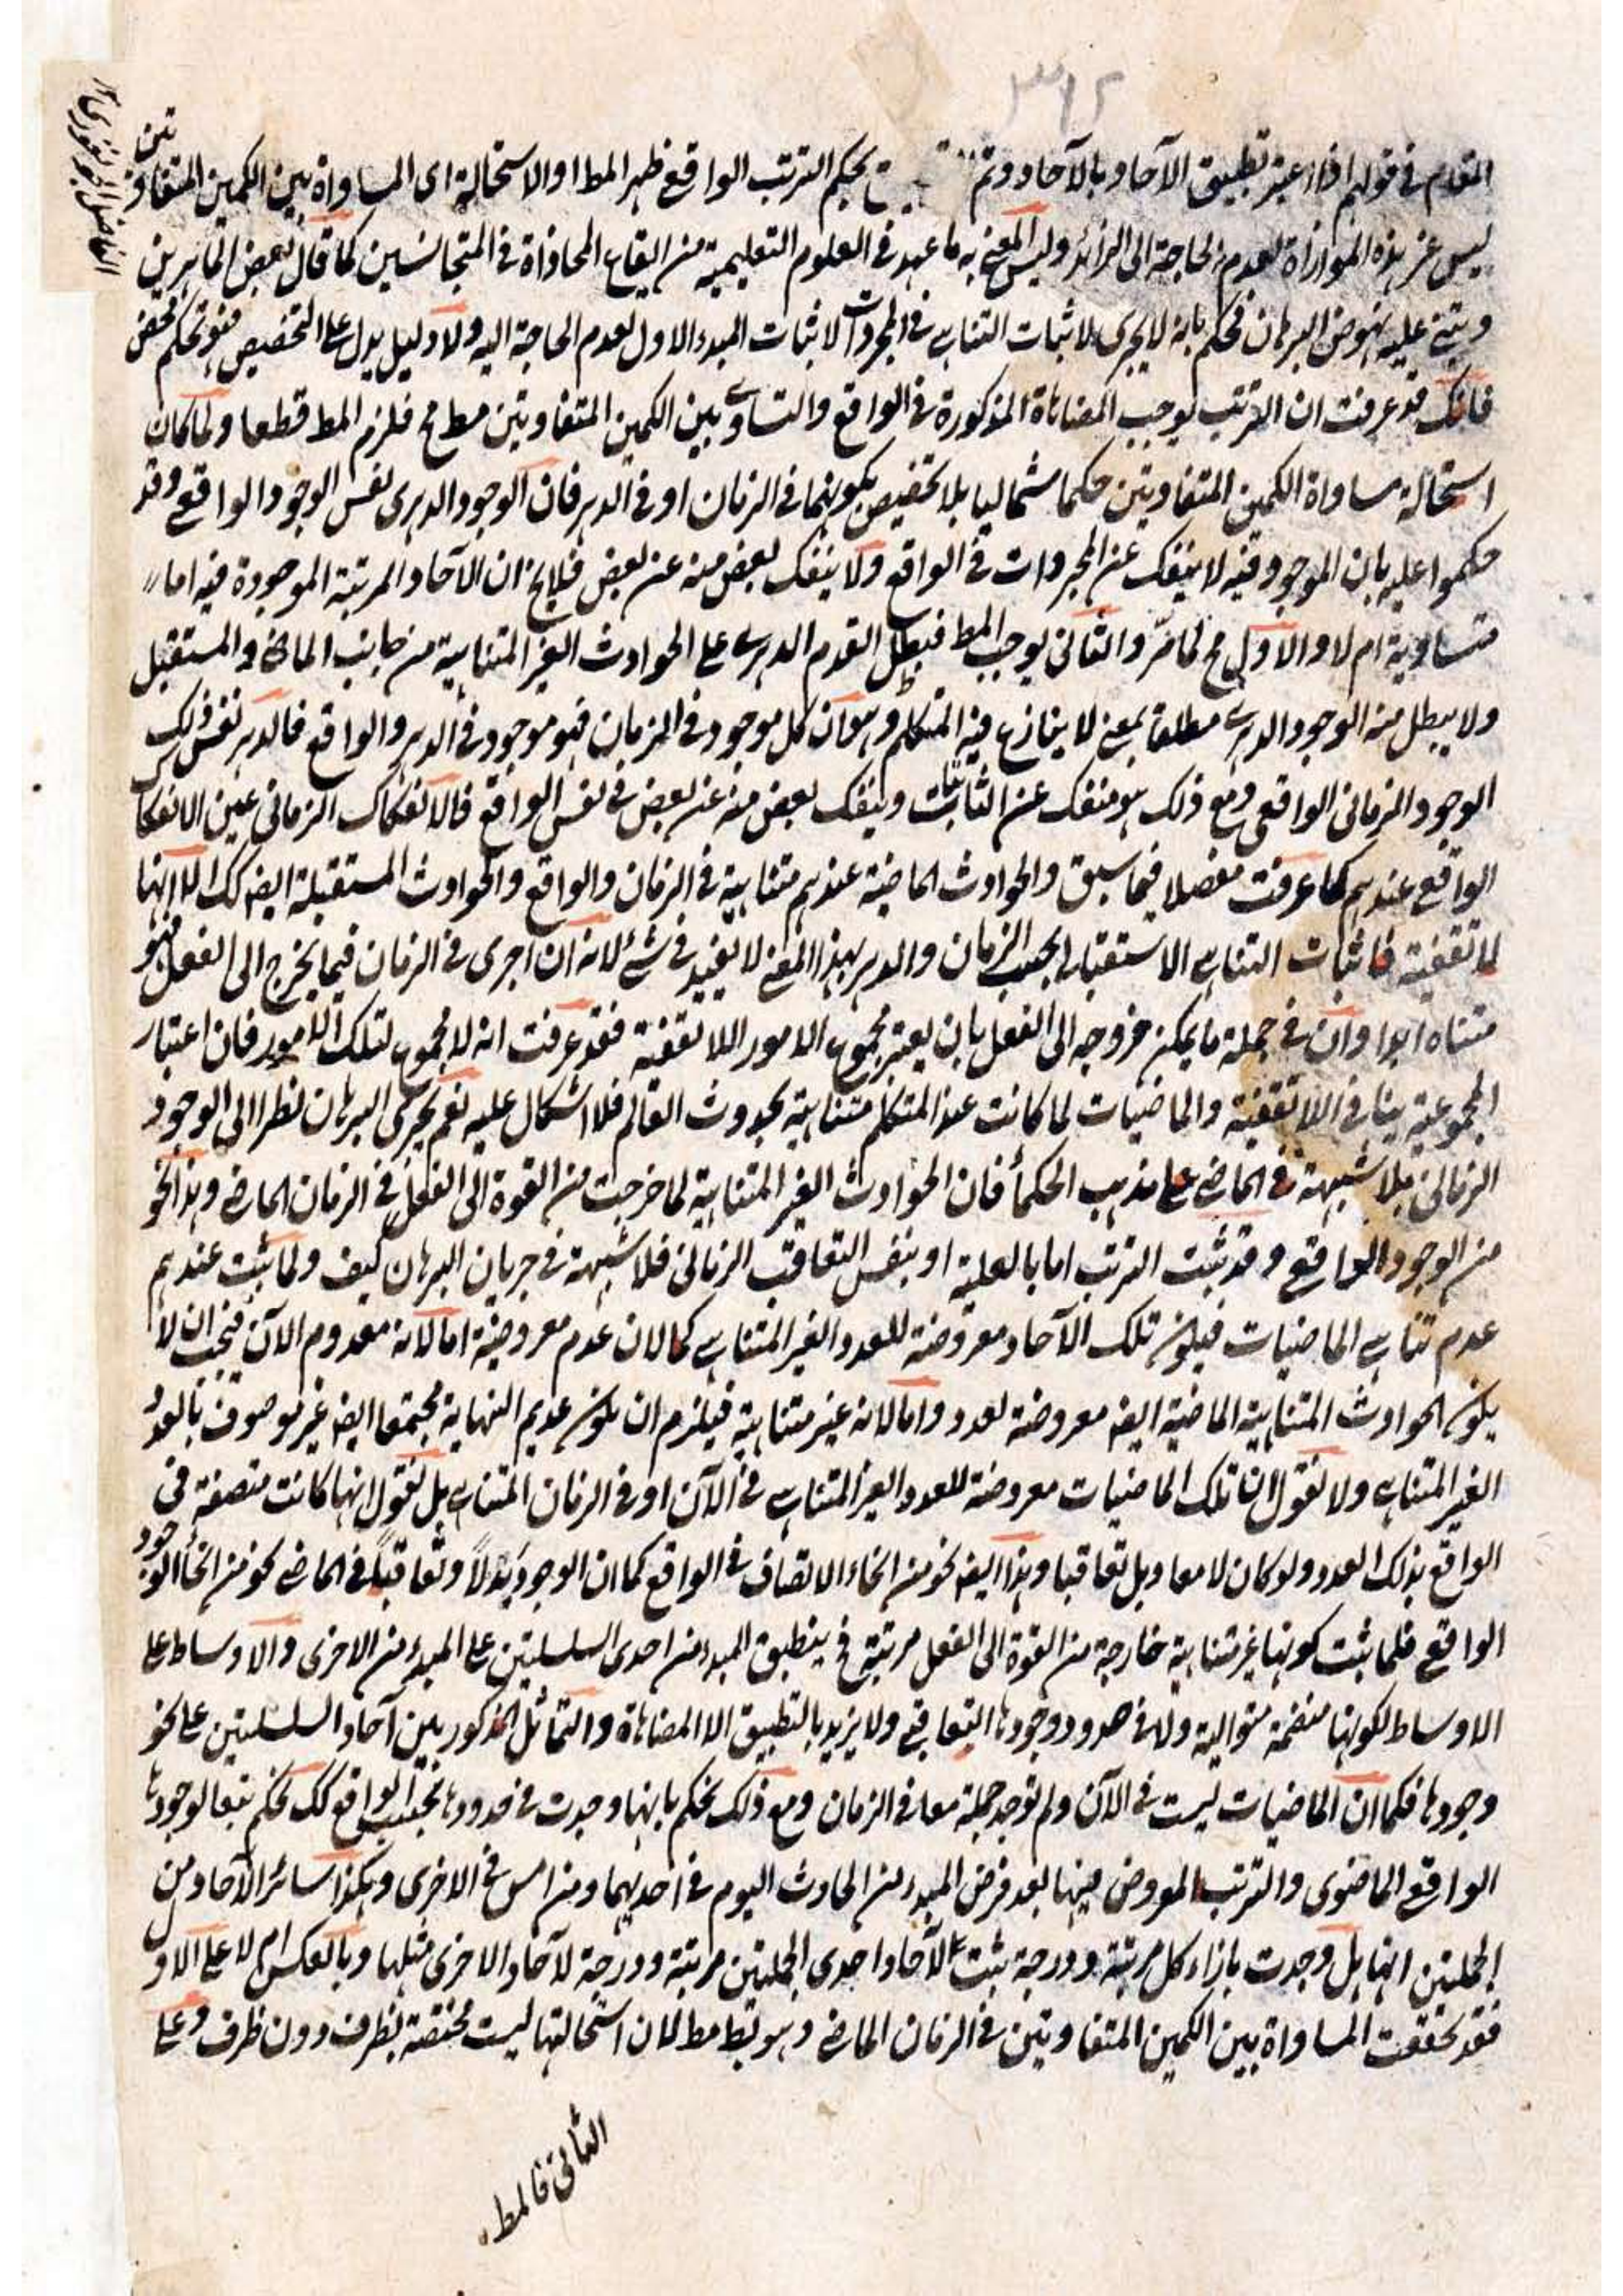 المقدم في قولهم اذا اعتبر تطبيق الآحاد بالآحاد وتم بحكم الترتب الواقع ظهر المط او الاستحالة اى المساواة بين الكمين المتفاوتين
ليس غير هذه الموازاة لعدم الحاجة الى الزائد وليس المعنى به ما عهد في العلوم التعليمية من ايقاع المحاذاة في المتجانسين كما قال بعض الماهرين
ويبتنى عليه نهوض البرهان فحكم بانه لا يجرى لاثبات التناهى في المجردات لاثبات المبدء الاول لعدم الحاجة اليه ولا دليل يدل على التخصيص فهو تحكم محض
فانك قد عرفت ان الترتب يوجب المضاهاة المذكورة في الواقع والتساوى بين الكمين المتفاوتين مطلقا مح فلزم المط قطعا ولما كان
استحالة مساواة الكمين المتفاوتين حكما شماليا بلا تخصيص بكونهما في الزمان او في الدهر فان الوجود الدهرى نفس الوجود الواقعى وقد
حكموا عليه بان الموجود فيه لا ينفك عن المجردات في الواقع ولا ينفك بعض منه عن بعض فلا يخ ان الآحاد المرتبة الموجودة فيه اما
متساوية ام لا والاول مح لما مرّ والثانى يوجب المط فيبطل القدم الدهرى على الحوادث الغير المتناهية من جانب الماضى والمستقبل
ولا يبطل منه الوجود الدهرى مطلقا بمعنى لا ينازع فيه المتكلم وهو ان كل موجود في الزمان فهو موجود في الدهر والواقع فالدهر نفس ذلك
الوجود الزمانى الواقعى ومع ذلك هو منفك عن الثابتات وينفك بعض منه عن بعض في نفس الواقع فالانفكاك الزمانى عين الانفكاك
الواقعى عندهم كما عرفت مفصلا فيما سبق والحوادث الماضية عندهم متناهية في الزمان والواقع والحوادث المستقبلة ايضا كك الا انها
لا تقفية فاثبات التناهى الاستقبالى بحسب الزمان والدهر بهذا المعنى لا يفيد في شئ لانه ان اجرى في الزمان فيما يخرج الى الفعل فهو
متناه ابدا وان في جملة ما يمكن خروجه الى الفعل بان يعتبر مجموع الامور اللاتقفية فقد عرفت انه لا مجموع لتلك الامور فان اعتبار
المجموعية ينافي اللاتقفية والماضيات لما كانت عند المتكلم متناهية بحدوث العالم فلا اشكال عليه نعم يجرى البرهان نظرا الى الوجود
الزمانى بلا شبهة في الماضى على مذهب الحكماء فان الحوادث الغير المتناهية لما خرجت من القوة الى الفعل في الزمان الماضى وهذا نحو
من الوجود الواقعى وقد ثبت الترتب اما بالعلية او بنفس التعاقب الزمانى فلا شبهة في جريان البرهان كيف ولما ثبت عندهم
عدم تناهى الماضيات فيكون تلك الآحاد معروضة للعدد الغير المتناهى كما لان عدم معروضية اما لانه معدوم الآن فيجب ان لا
يكون الحوادث المتناهية الماضية ايضا معروضة لعدد واما لانه غير متناهية فيلزم ان يكون عديم النهاية مجتمعا ايضا غير موصوف بالعدد
الغير المتناهى ولا نقول ان تلك الماضيات معروضة للعدد الغير المتناهى في الآن او في الزمان المتناهى بل نقول انها كانت متصفة في
الواقع بذلك العدد ولو كان لا معا وبل تعاقبا وهذا ايضا نحو من انحاء الاتصاف في الواقع كما ان الوجود بدلاً وتعاقباً في الماضى نحو من انحاء الوجود
الواقعى فلما ثبت كونها غير متناهية خارجة من القوة الى الفعل مرتبة في ينطبق المبدء من احدى السلسلتين على المبدء من الاخرى والاوساط على
الاوساط لكونها منضمة متوالية ولاء في حدود وجودها التعاقبى ولا يزيد بالتطبيق الا المضاهاة والتماثل المذكور بين آحاد السلسلتين على نحو
وجودها فكما ان الماضيات ليست في الآن ولم توجد جملة معا في الزمان ومع ذلك نحكم بانها وجدت في حدودها بحسب الواقع كك نحكم تبعا لوجودها
الواقعى الماضوى والترتب المعروض فيها بعد فرض المبدء من الحادث اليوم في احديهما ومن امس في الاخرى وهكذا سائر الآحاد من
الجملتين انها هل وجدت بازاء كل مرتبة ودرجة ثبت لآحاد احدى الجملتين مرتبة ودرجة لآحاد الاخرى مثلها وبالعكس ام لا على الاول
فقد تحققت المساواة بين الكمين المتفاوتين في الزمان الماضى وهو بط مطلقا لان استحالتها ليست مختصة بظرف دون ظرف وعلى
الثانى فالمط